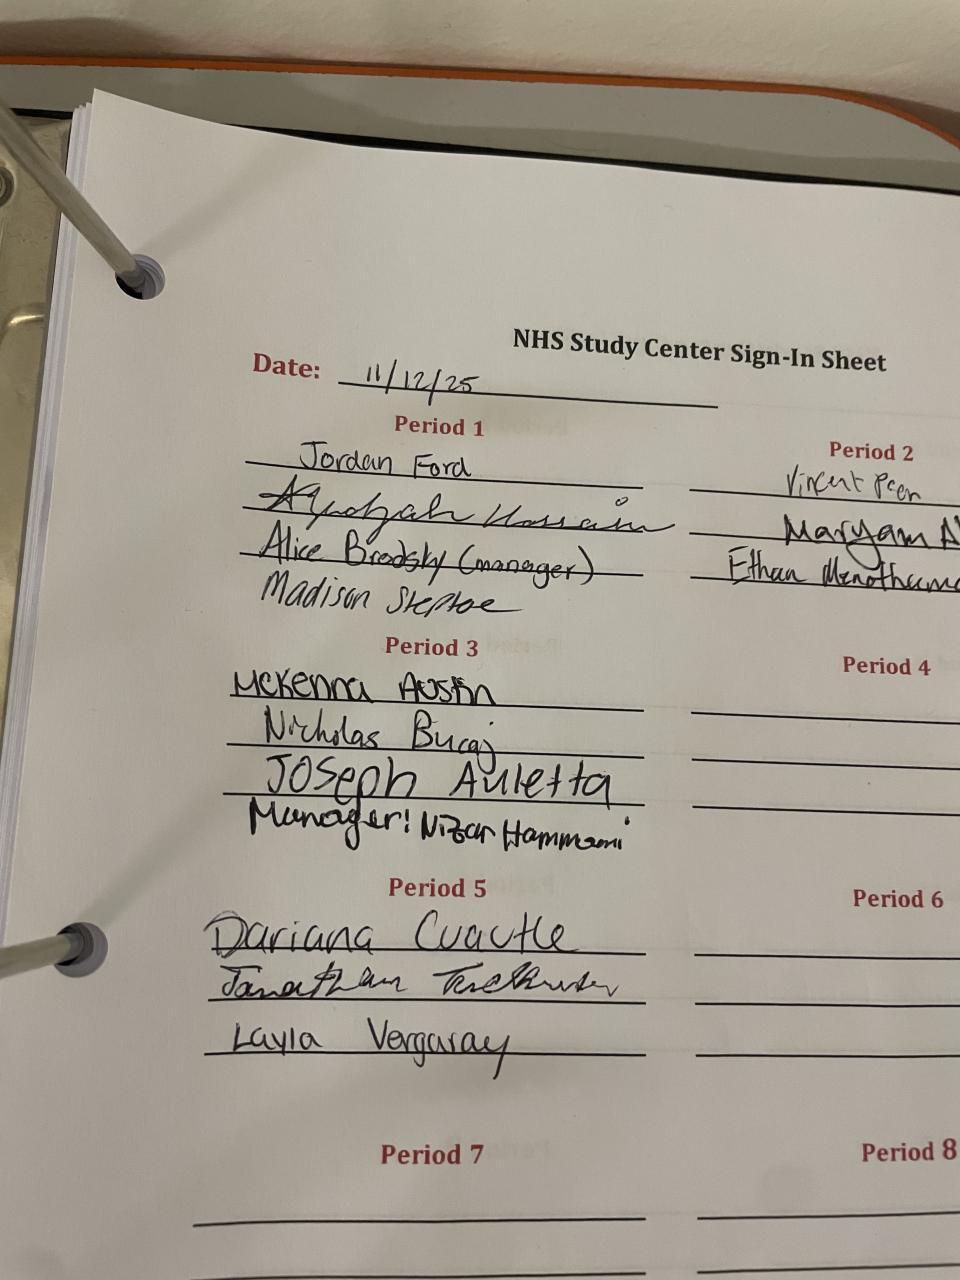 NHS Study Center Sign-In Sheet
Date: 11/12/25
Period 1
Jordan Ford
Hossain
Alice Brodsky (manager)
Madison Steptoe
Period 2
Vincent
Maryam
Ethan
Period 3
McKenna Austin
Nicholas Bucaj
Joseph Auletta
Manager: Nizar Hammami
Period 4
Period 5
Dariana Cuautle
Jonathan
Layla Vergaray
Period 6
Period 7
Period 8